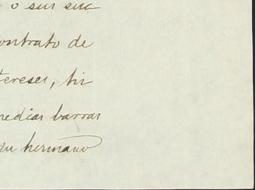 o sus sua
contrato de
tereses, hi
medias barras
su hermano